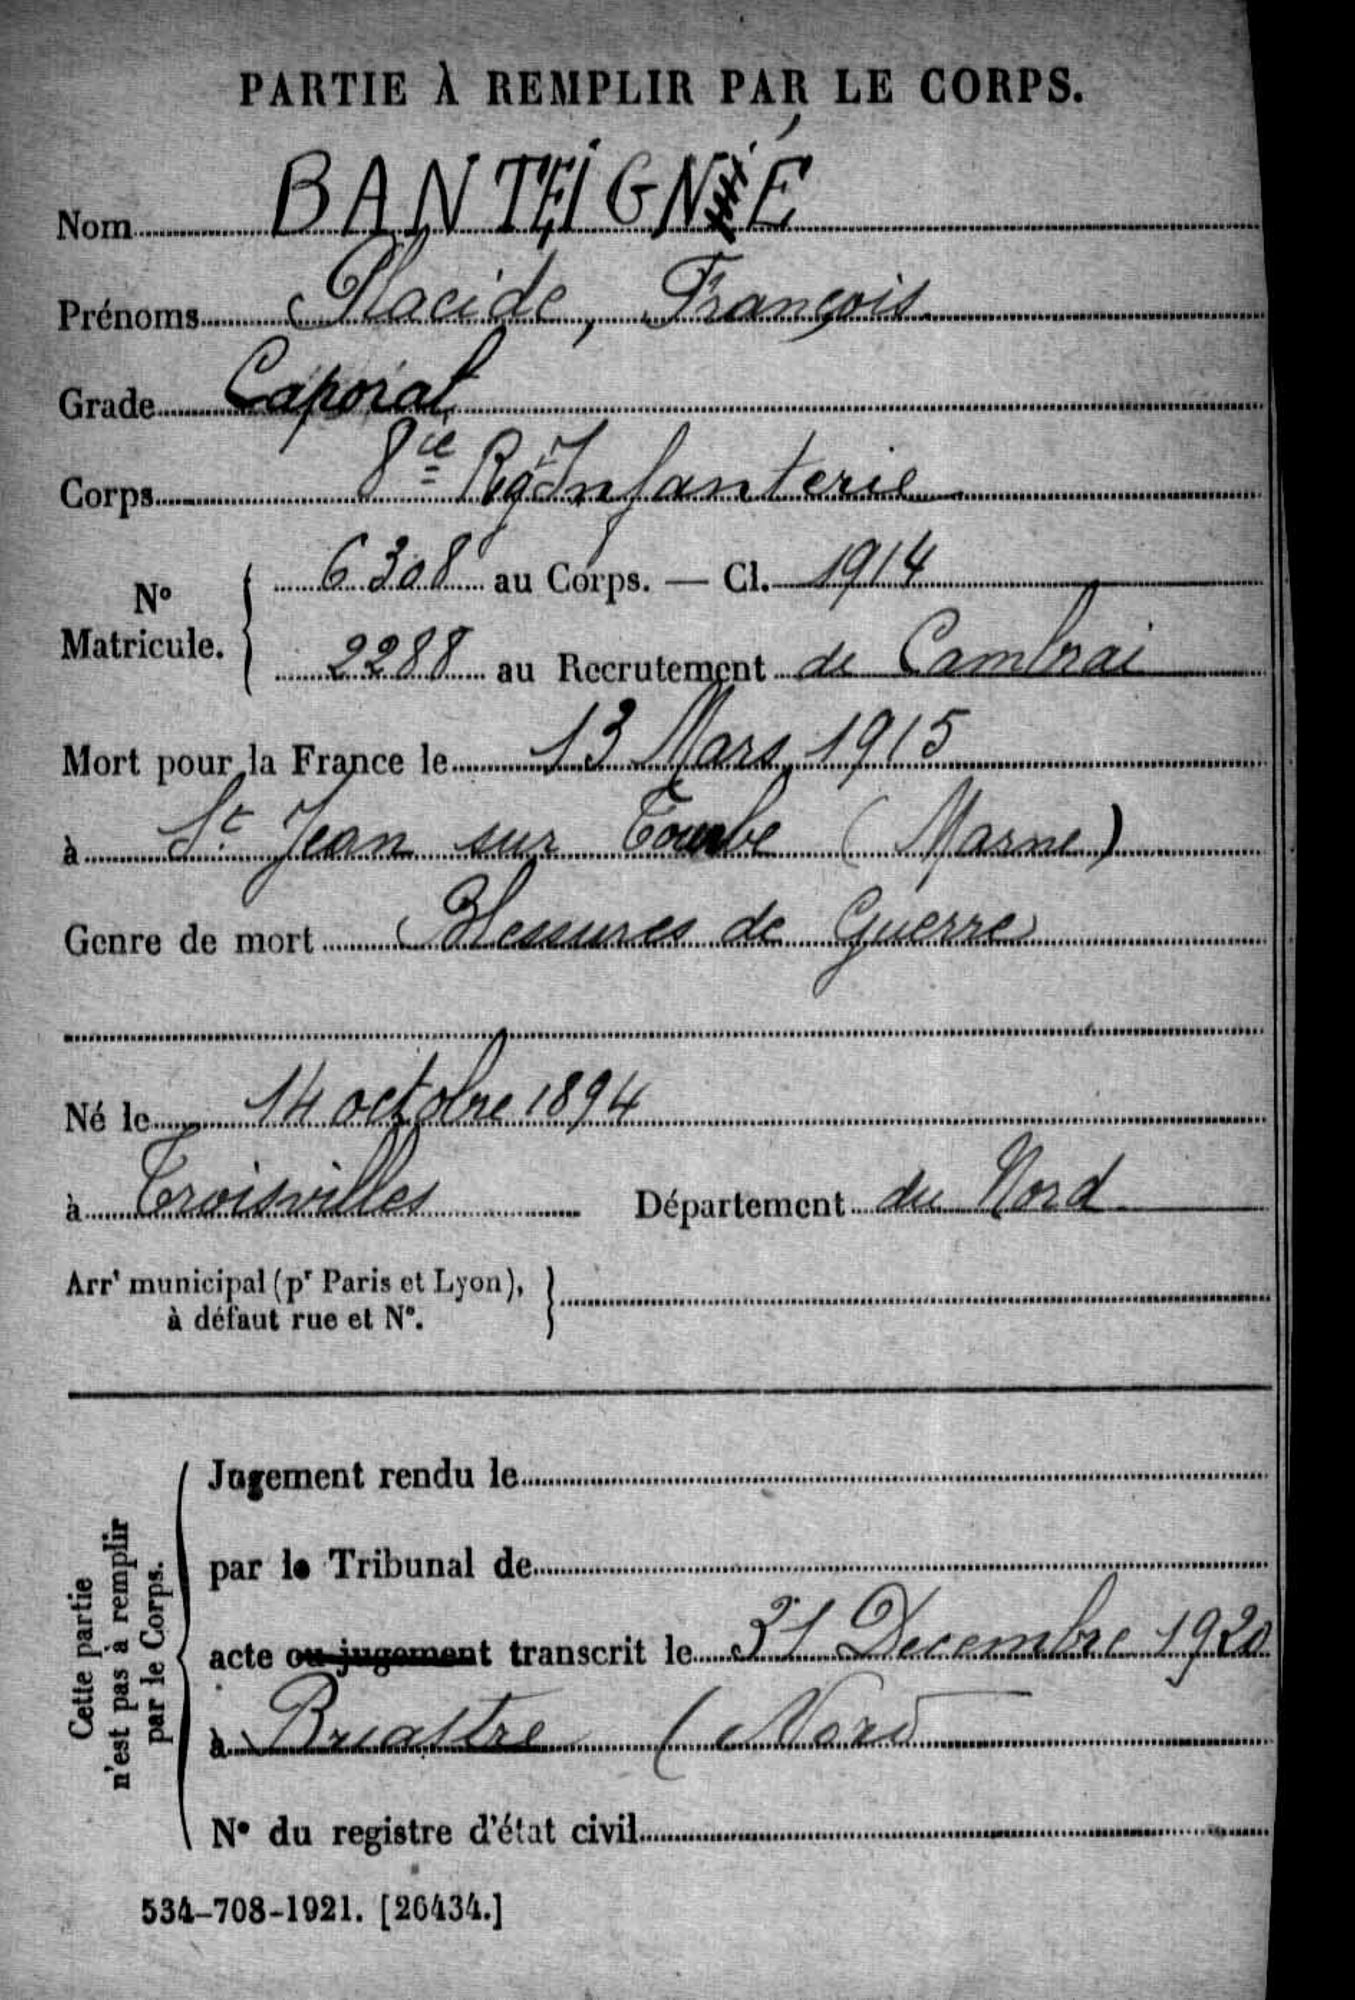 PARTIE À REMPLIR PAR LE CORPS.
Nom BANTEIGNÉ
Prénoms Placide, François
Grade Caporal
Corps 8ie Rgt Infanterie
N° Matricule. { 6308 au Corps. — Cl. 1914
2288 au Recrutement de Cambrai
Mort pour la France le 13 Mars 1915
à St Jean sur Tourbe (Marne)
Genre de mort Blessures de Guerre
Né le 14 octobre 1894
à Troisvilles Département du Nord
Arrt municipal (pr Paris et Lyon), }
à défaut rue et N°.
Cette partie
n'est pas à remplir
par le Corps.
Jugement rendu le
par le Tribunal de
acte ou jugement transcrit le 31 Decembre 1920
à Briastre (Nord
N° du registre d'état civil
534-708-1921. [26434.]